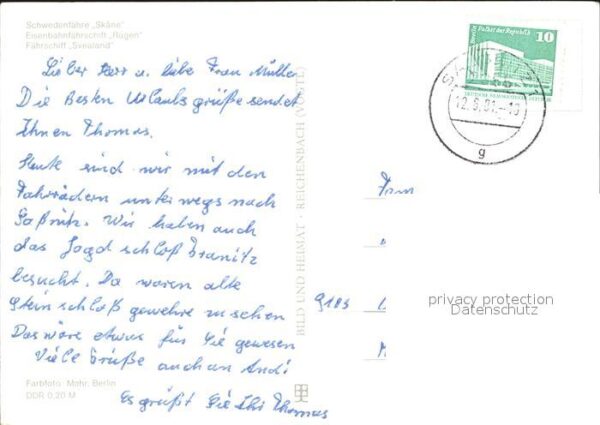 Schwedenfähre „Skåne"
Eisenbahnfährschiff „Rügen"
Fährschiff „Svealand"
Lieber Herr u. liebe Frau Müller
Die besten Urlaubsgrüße sendet
Ihnen Thomas.
Heute sind wir mit den
Fahrrädern unterwegs nach
Saßnitz. Wir haben auch
das Jagdschloß Granitz
besucht. Da waren alte
Steinschloß gewehre zu sehen
Das wäre etwas für Sie gewesen
Viele Grüße auch an Andi
Es grüßt Sie Ihr Thomas
Farbfoto: Mohr, Berlin
DDR 0,20 M
BILD UND HEIMAT · REICHENBACH (VOGTL)
Berlin Palast der Republik
10
g
Frau
privacy protection
Datenschutz